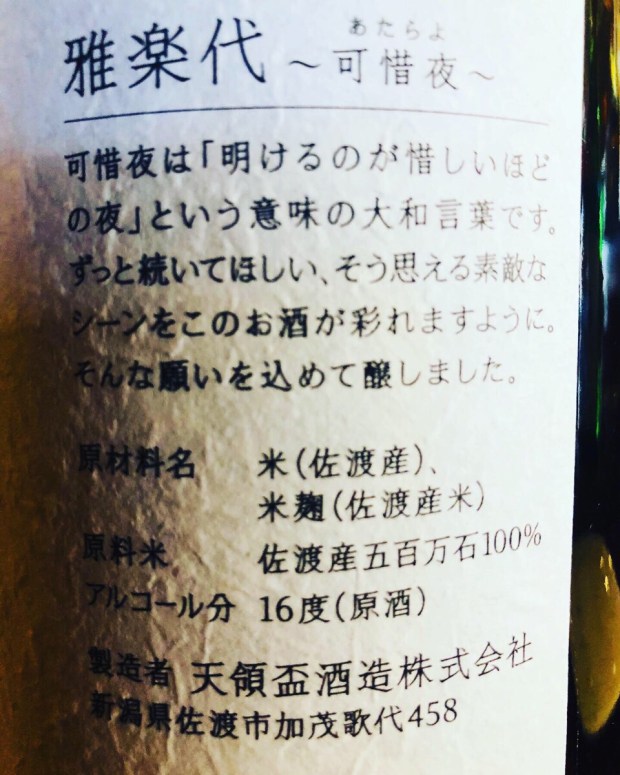 あたらよ
雅楽代 ～可惜夜～
可惜夜は「明けるのが惜しいほど
の夜」という意味の大和言葉です。
ずっと続いてほしい、そう思える素敵な
シーンをこのお酒が彩れますように。
そんな願いを込めて醸しました。
原材料名 米(佐渡産)、
米麹(佐渡産米)
原料米 佐渡産五百万石100%
アルコール分 16度(原酒)
製造者 天領盃酒造株式会社
新潟県佐渡市加茂歌代458